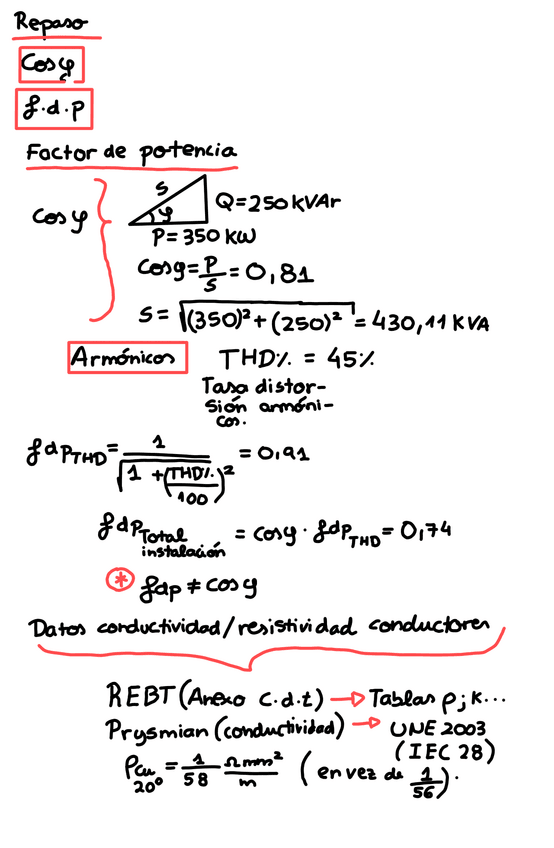 Repaso
Cosφ
f.d.p
Factor de potencia
Cosφ
S
φ
Q=250KVAr
P=350KW
Cosφ=P/S=0,81
S=√(350)²+(250)²=430,11KVA
Armónicos THD%=45%
Tasa distor-
sión armóni-
cos.
fdpTHD=1/√1+(THD%/100)²=0,91
fdpTotal instalación=cosφ·fdpTHD=0,74
* fdp≠cosφ
Datos conductividad/resistividad conductores
REBT(Anexo c.d.t)→Tablas ρ;K...
Prysmian(conductividad)→UNE 2003
(IEC 28)
ρCu 20º=1/58 Ωmm²/m (en vez de 1/56).